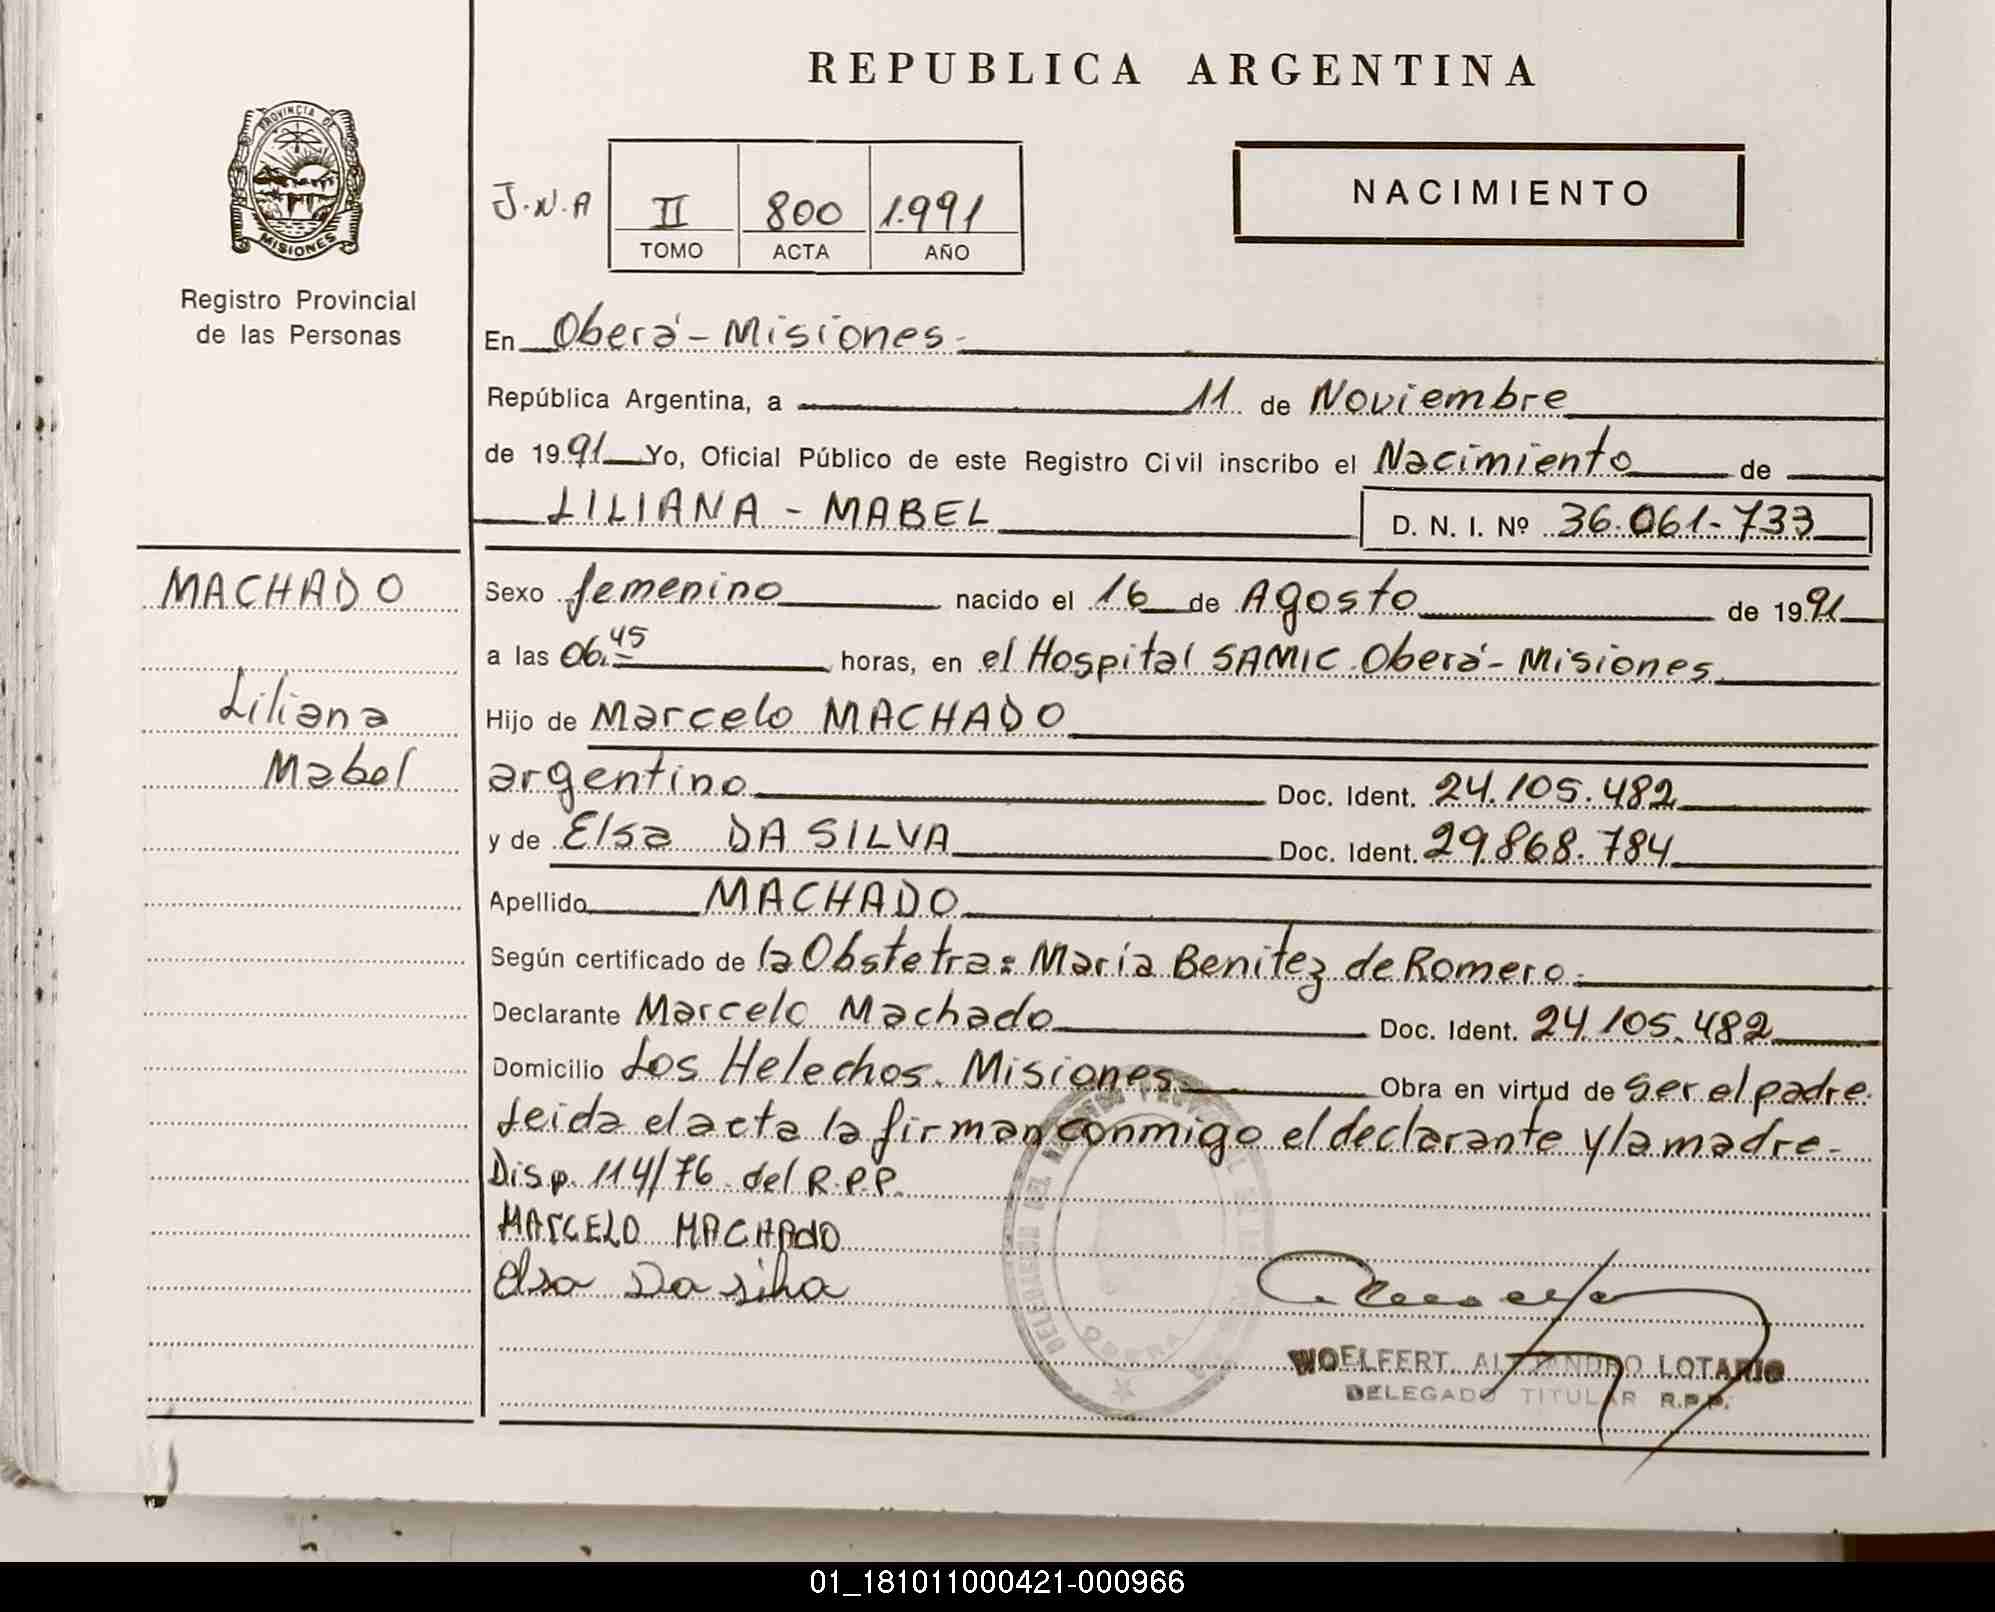 REPUBLICA ARGENTINA
PROVINCIA DE
MISIONES
Registro Provincial
de las Personas
J.N.A
II 800 1.991
TOMO ACTA AÑO
NACIMIENTO
En Oberá - Misiones.
República Argentina, a 11 de Noviembre
de 1991 Yo, Oficial Público de este Registro Civil inscribo el Nacimiento de
LILIANA - MABEL D. N. I. Nº 36.061-733
MACHADO
Liliana
Mabel
Sexo femenino nacido el 16 de Agosto de 1991
a las 06.45 horas, en el Hospital SAMIC Oberá - Misiones
Hijo de Marcelo MACHADO
argentino Doc. Ident. 24.105.482
y de Elsa DA SILVA Doc. Ident. 29.868.784
Apellido MACHADO
Según certificado de la Obstetra: María Benitez de Romero.
Declarante Marcelo Machado Doc. Ident. 24.105.482
Domicilio Los Helechos. Misiones Obra en virtud de ser el padre.
Leida el acta la firman conmigo el declarante y la madre.
Disp. 114/76 del R.P.P.
MARCELO MACHADO
Elsa Da silva
OBERA
WOELFERT ALEJANDRO LOTARIO
DELEGADO TITULAR R.P.P.
01_181011000421-000966